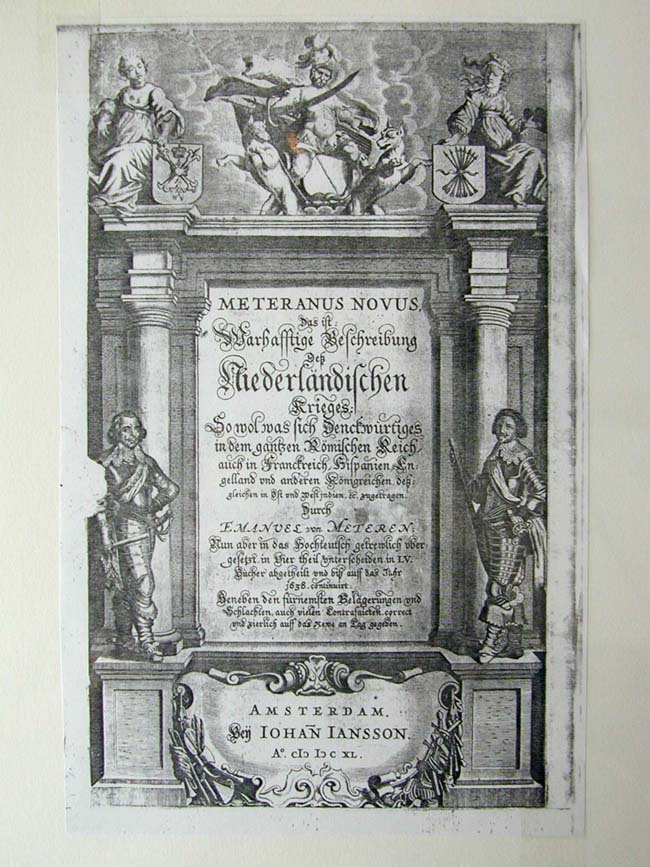 METERANUS NOVUS,
Das ist
Warhafftige Beschreibung
Deß
Niederländischen
Krieges:
So wol was sich Denckwürtiges
in dem gantzen Römischen Reich,
auch in Franckreich, Hispanien, En-
gelland vnd anderen Königreichen, deß-
gleichen in Ost vnd West indien. &c. zugetragen.
Durch
EMANVEL von METEREN:
Nun aber in das Hochteutsch getrewlich vber-
gesetzt, in Vier theil vnterscheiden in LV.
Bücher abgetheilt vnd biß auff das Jahr
1638. continuirt.
Beneben den fürnemsten Belägerungen vnd
Schlachten, auch vielen Contrafaicten, correct
vnd zierlich auff das Newe an Tag gegeben.
AMSTERDAM.
Beÿ IOHAÑ IANSSON.
Aº. cIↃ IↃc XL.